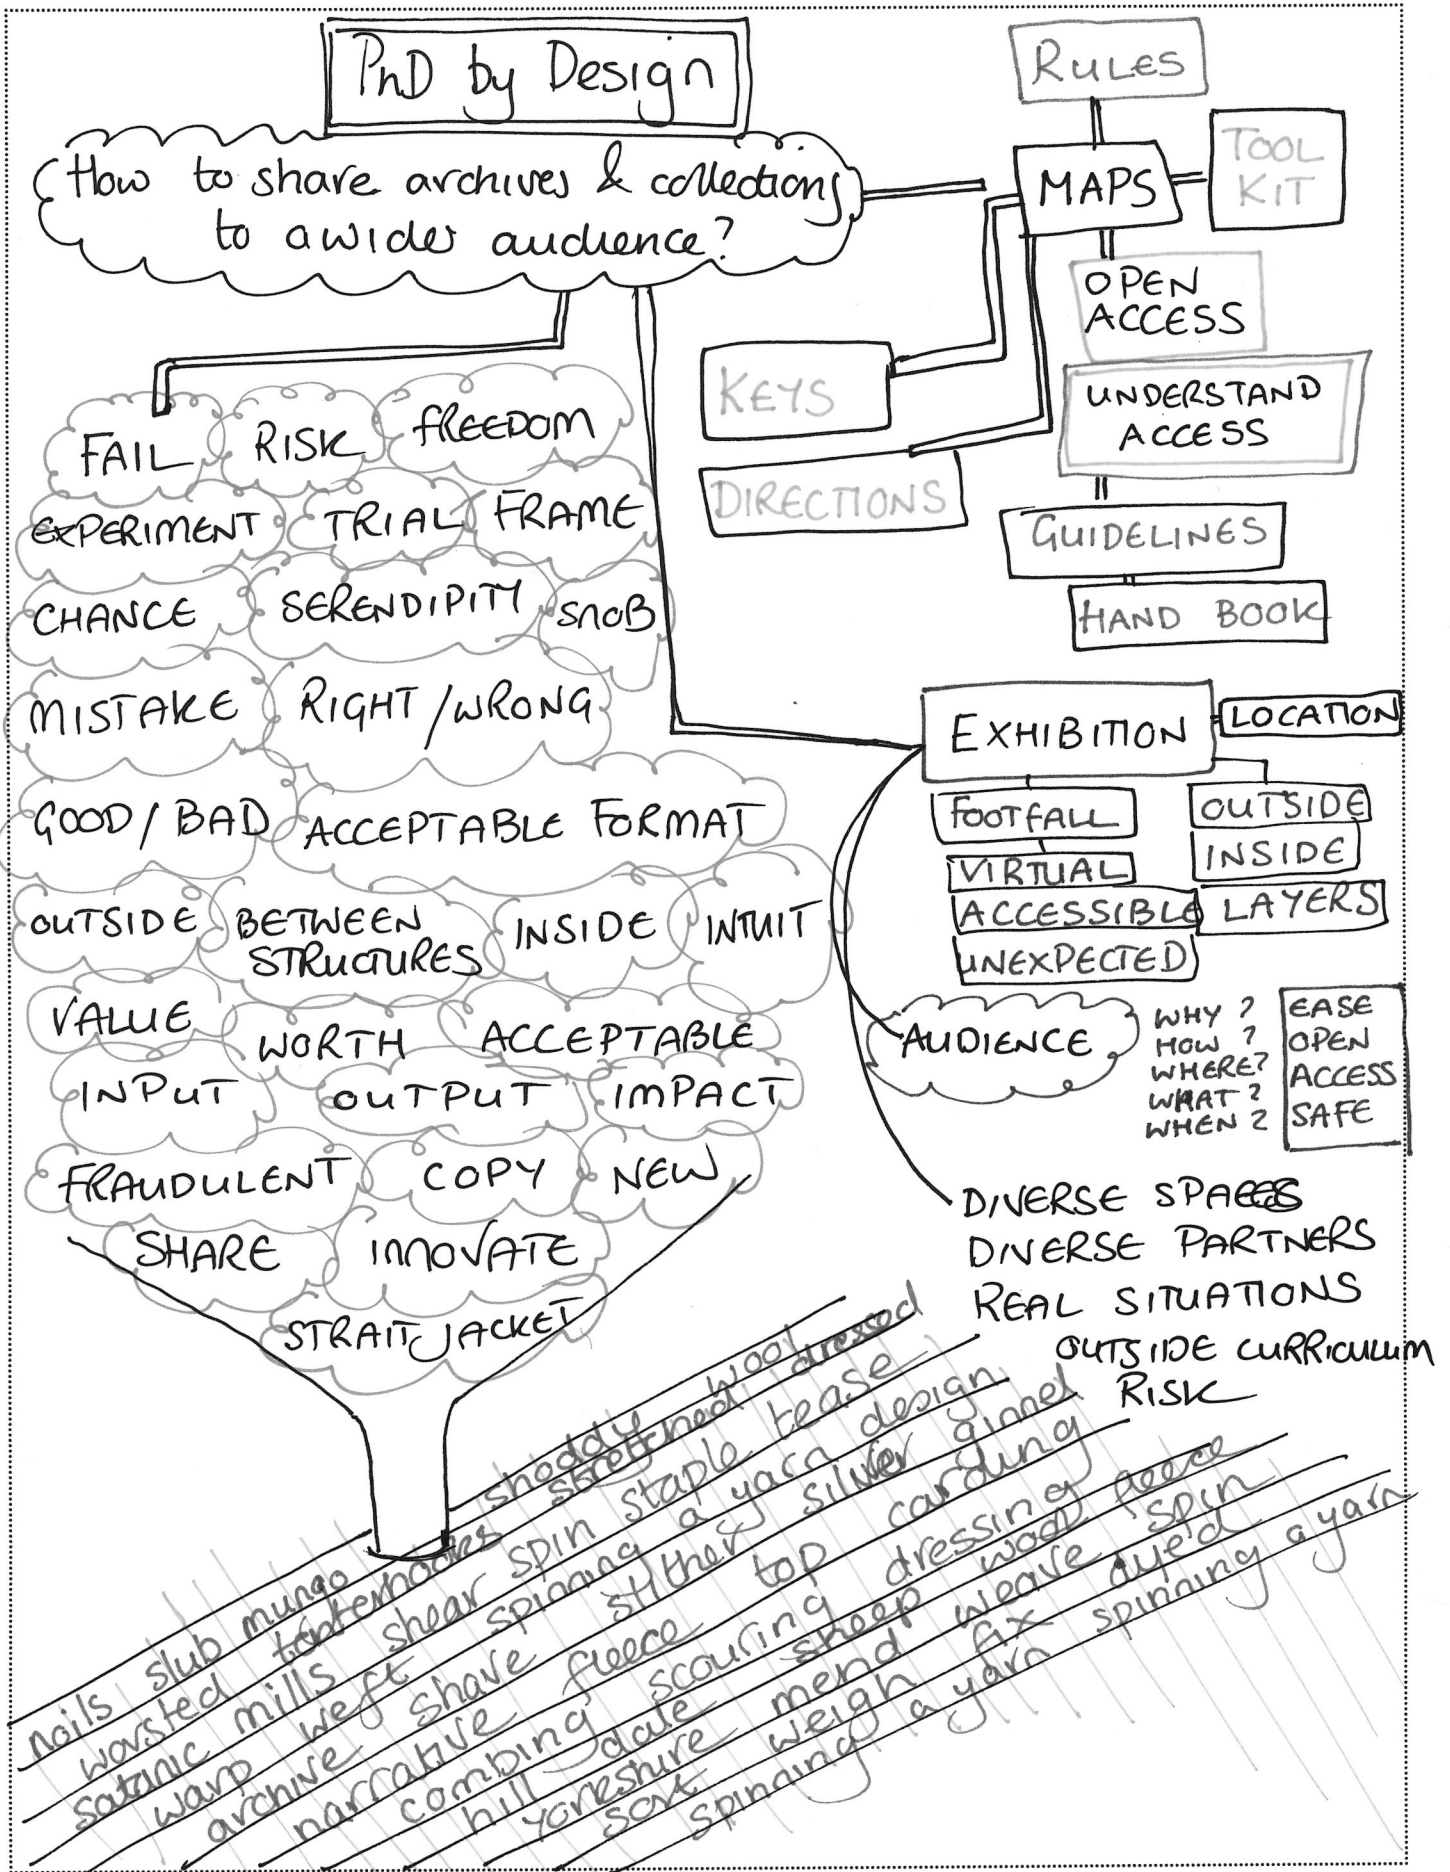 PhD by Design
How to share archives & collections
to a wider audience?
RULES
MAPS
TOOL
KIT
OPEN
ACCESS
UNDERSTAND
ACCESS
KEYS
DIRECTIONS
GUIDELINES
HAND BOOK
FAIL RISK FREEDOM
EXPERIMENT TRIAL FRAME
CHANCE SERENDIPITY SNOB
MISTAKE RIGHT/WRONG
GOOD/BAD ACCEPTABLE FORMAT
OUTSIDE BETWEEN
STRUCTURES INSIDE INTUIT
VALUE WORTH ACCEPTABLE
INPUT OUTPUT IMPACT
FRAUDULENT COPY NEW
SHARE INNOVATE
STRAIT JACKET
EXHIBITION
LOCATION
FOOTFALL
VIRTUAL
ACCESSIBLE
UNEXPECTED
OUTSIDE
INSIDE
LAYERS
AUDIENCE
WHY?
HOW?
WHERE?
WHAT?
WHEN?
EASE
OPEN
ACCESS
SAFE
DIVERSE SPACES
DIVERSE PARTNERS
REAL SITUATIONS
OUTSIDE CURRICULUM
RISK
noils slub mungo shoddy wool
worsted tenterhooks stretched dressed
satanic mills shear spin staple tease
warp weft spinning a yarn design
archive share slither silver ginnel
narrative fleece top carding
combing scouring dressing
hill dale sheep wool fleece
yorkshire mend weave spin
sort weigh fix dyed
spinning a yarn spinning a yarn